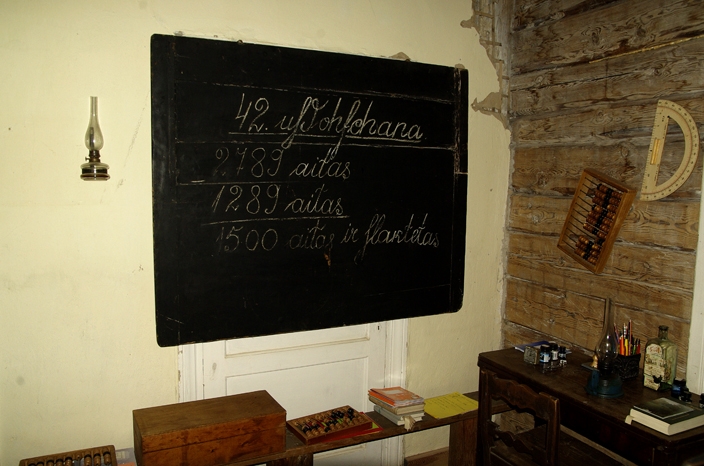 42. uſdohſchana
2789 aitas
1289 aitas
1500 aitas ir ſlaktetas